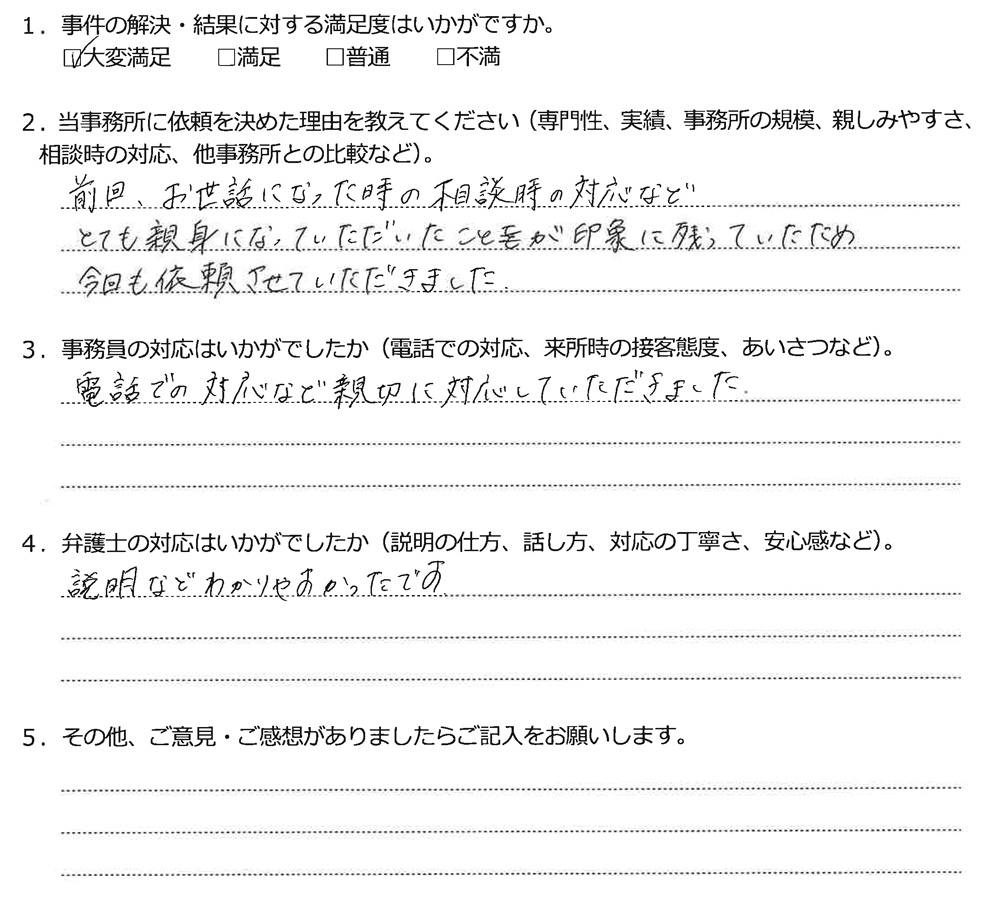 1．事件の解決・結果に対する満足度はいかがですか。
☑大変満足　□満足　□普通　□不満
2．当事務所に依頼を決めた理由を教えてください（専門性、実績、事務所の規模、親しみやすさ、
相談時の対応、他事務所との比較など）。
前回、お世話になった時の相談時の対応など
とても親身になっていただいたこと等が印象に残っていたため
今回も依頼させていただきました.
3．事務員の対応はいかがでしたか（電話での対応、来所時の接客態度、あいさつなど）。
電話での対応など親切に対応していただきました.
4．弁護士の対応はいかがでしたか（説明の仕方、話し方、対応の丁寧さ、安心感など）。
説明などわかりやすかったです
5．その他、ご意見・ご感想がありましたらご記入をお願いします。